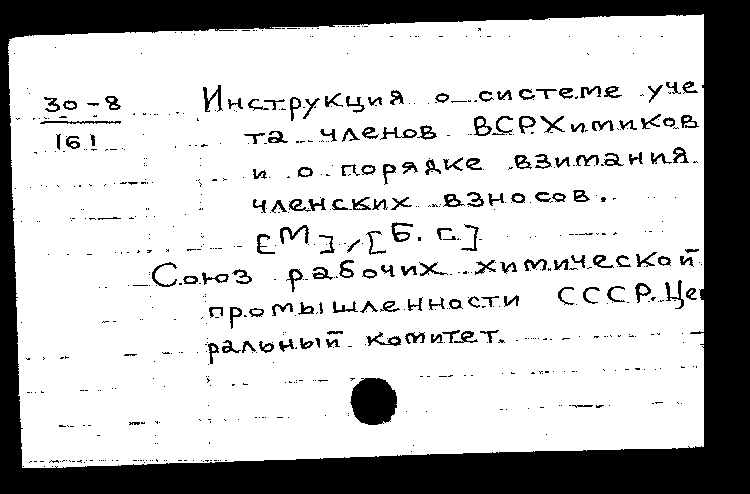 30-8
161
Инструкция о системе уче-
та членов ВСРХимиков
и о порядке взимания
членских взносов.
[М], [Б. г.]
Союз рабочих химической
промышленности СССР. Цен
ральный комитет.